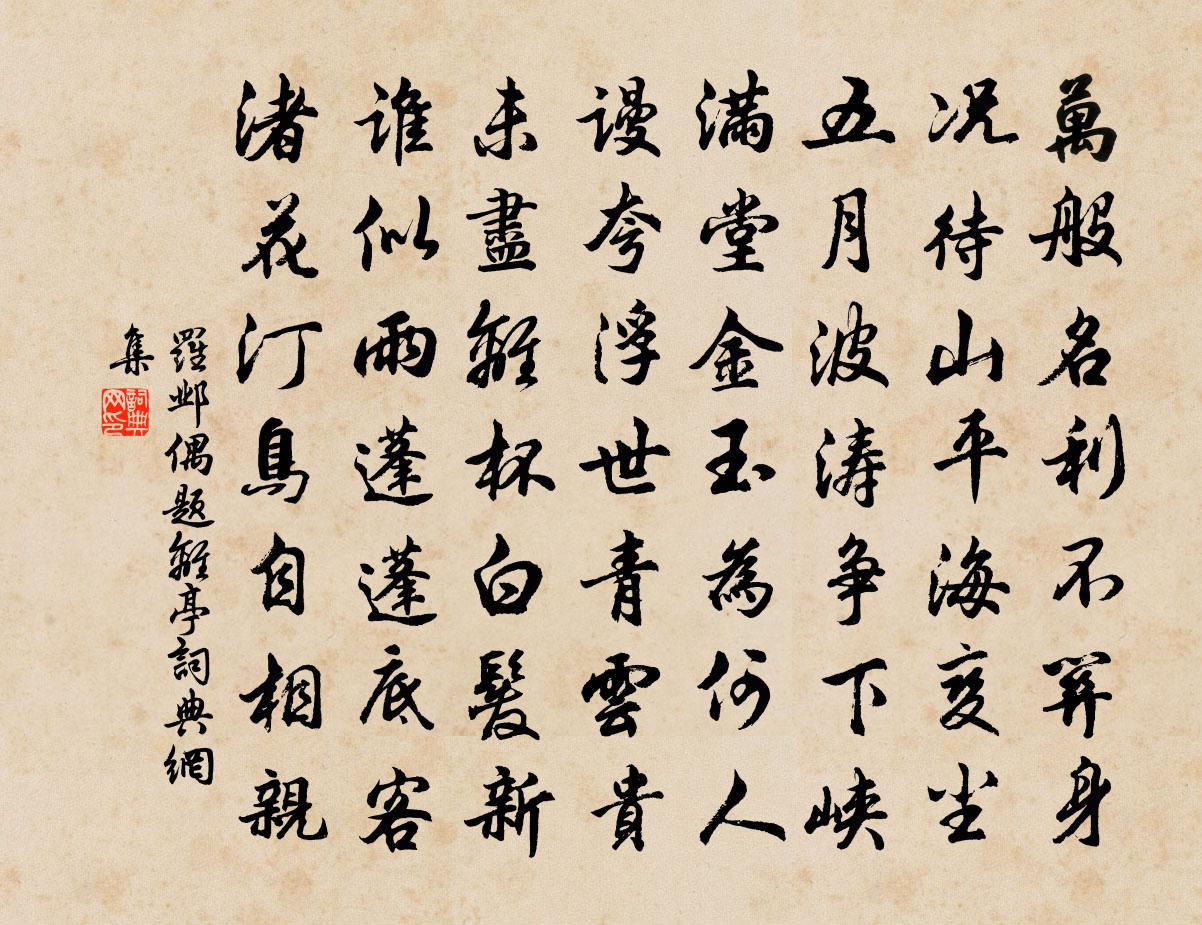 萬般名利不關身
况待山平海變塵
五月波涛争下峡
满堂金玉為何人
谩夸浮世青雲貴
未盡離杯白髮新
谁似雨蓬蓬底客
渚花汀鳥自相親
羅邺偶题離亭詞典網
集
詞典网印